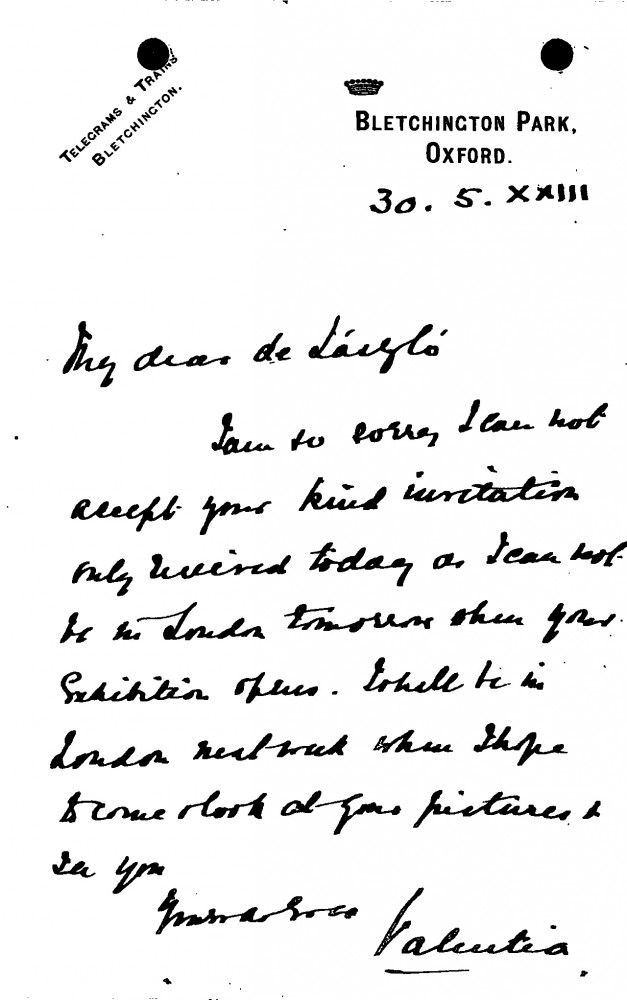 TELEGRAMS & TRAINS
BLETCHINGTON.
BLETCHINGTON PARK,
OXFORD.
30. 5. XXIII
My dear de László
I am so sorry I can not
accept your kind invitation
only received today as I can not
be in London tomorrow when your
Exhibition opens. I shall be in
London next week when I hope
to come & look at your pictures &
see you
Yours
Valentia